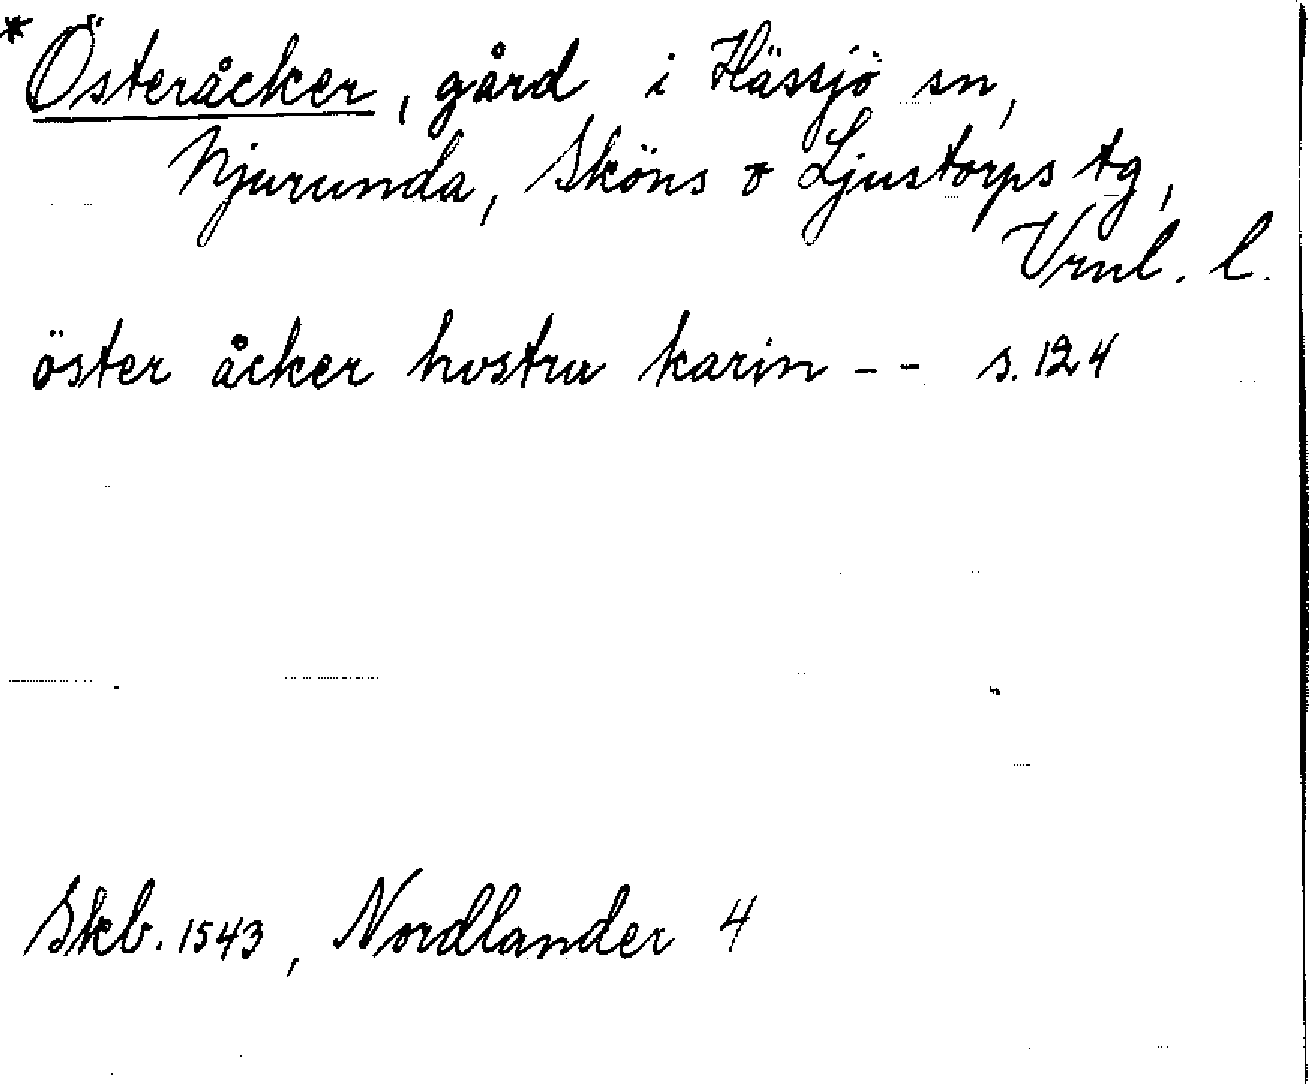 * Österåcker, gård i Hässjö sn,
Njurunda, Sköns o Ljustorps tg,
Vrnl. l.
öster åcker hustru karin -- s. 124
Skb. 1543, Nordlander 4